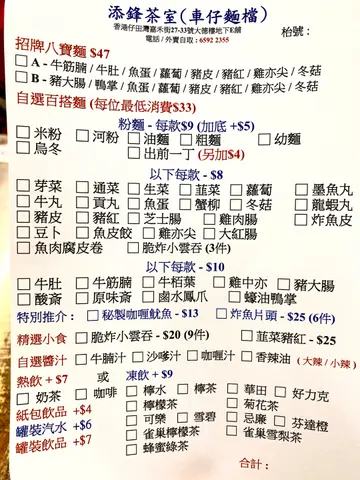 添鋒茶室(車仔麵檔)
香港仔田灣嘉禾街27-33號大德樓地下E舖
電話 / 外賣自取 : 6592 2355
枱號 :
招牌八寶麵 $47
A - 牛筋腩 / 牛肚 / 魚蛋 / 蘿蔔 / 豬皮 / 豬紅 / 雞亦尖 / 冬菇
B - 豬大腸 / 鴨掌 / 魚蛋 / 蘿蔔 / 豬皮 / 豬紅 / 雞亦尖 / 冬菇
自選百搭麵 (每位最低消費$33)
粉麵 - 每款$9 (加底 +$5)
米粉 河粉 油麵 粗麵 幼麵
烏冬 出前一丁 (另加$4)
以下每款 - $8
芽菜 通菜 生菜 韮菜 蘿蔔 墨魚丸
牛丸 貢丸 魚蛋 蟹柳 冬菇 龍蝦丸
豬皮 豬紅 芝士腸 雞肉腸 炸魚皮
豆卜 魚皮餃 雞亦尖 大紅腸
魚肉腐皮卷 脆炸小雲吞 (3件)
以下每款 - $10
牛肚 牛筋腩 牛栢葉 雞中亦 豬大腸
酸齋 原味齋 鹵水鳳爪 蠔油鴨掌
特別推介 : 秘製咖喱魷魚 - $13 炸魚片頭 - $25 (6件)
精選小食 脆炸小雲吞 - $20 (9件) 韮菜豬紅 - $25
自選醬汁 牛腩汁 沙嗲汁 咖喱汁 香辣油 ( 大辣 / 小辣 )
熱飲 + $7 或 凍飲 + $9
奶茶 咖啡 檸水 檸茶 華田 好力克
紙包飲品 +$4 檸檬茶 菊花茶
罐裝汽水 +$6 可樂 雪碧 忌廉 芬達橙
罐裝飲品 +$7 雀巢檸檬茶 雀巢雪梨茶
蜂蜜綠茶
合計 :